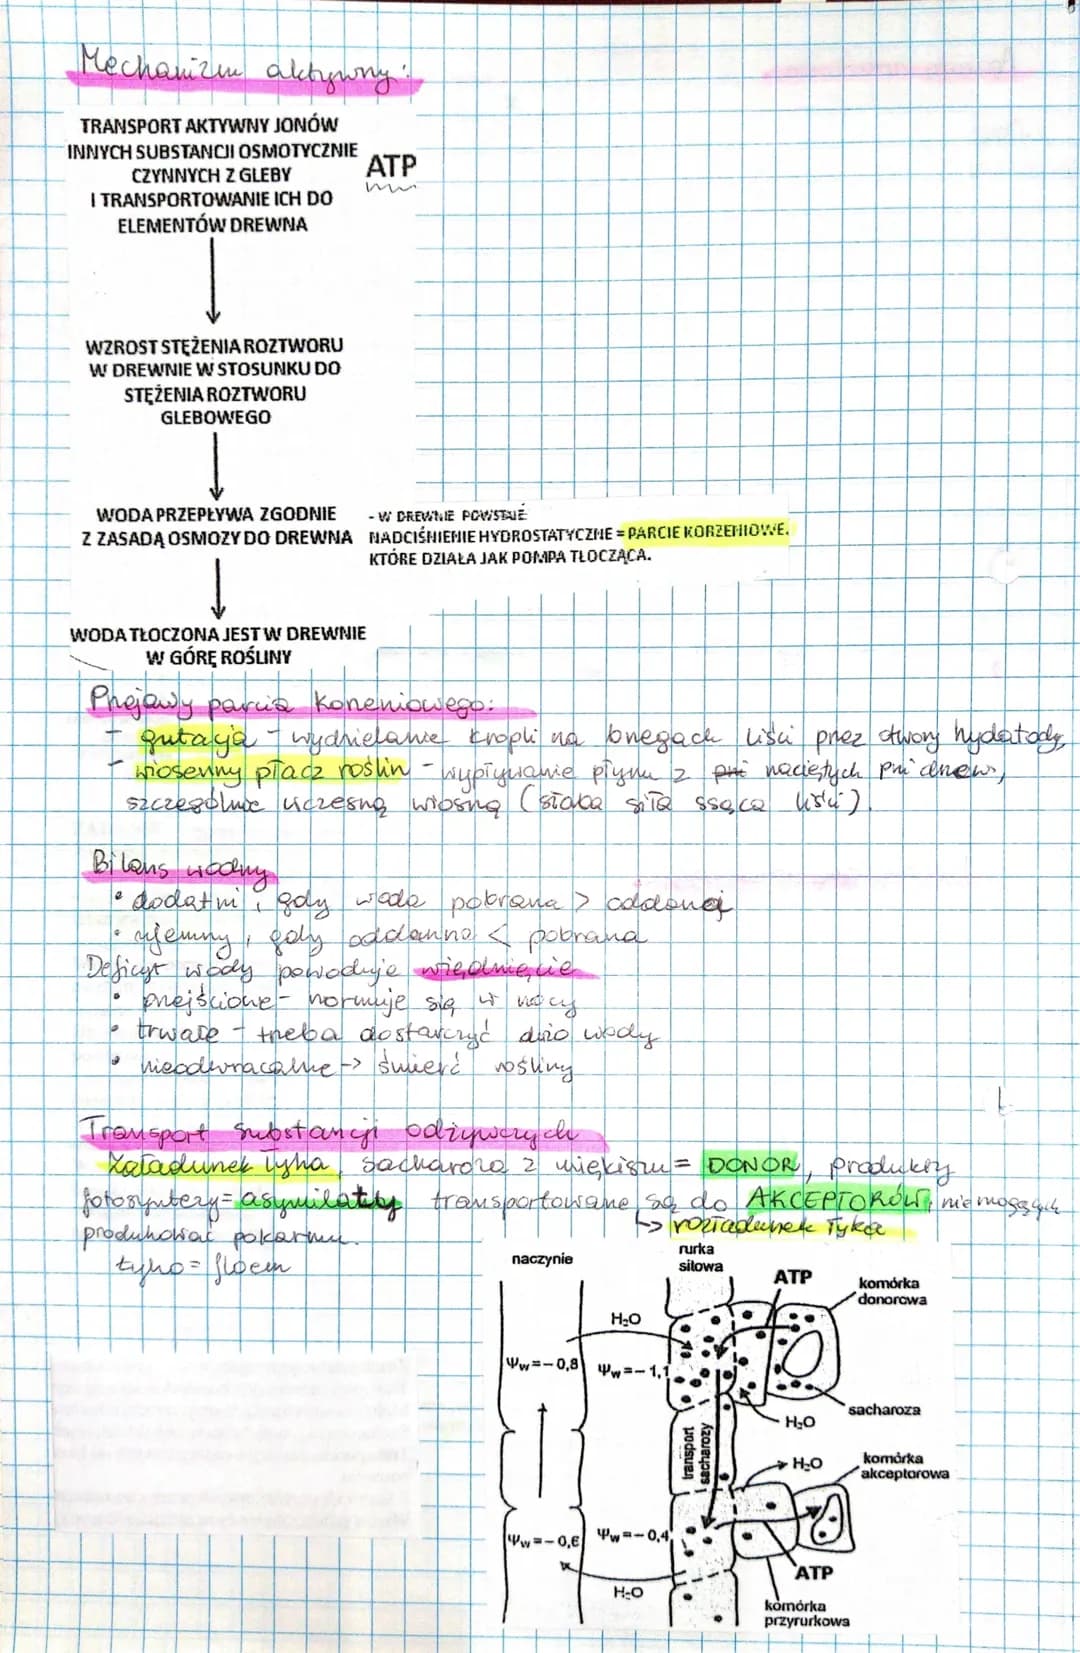 Mechanizm aktywny:
TRANSPORT AKTYWNY JONÓW
INNYCH SUBSTANCJI OSMOTYCZNIE
CZYNNYCH Z GLEBY
I TRANSPORTOWANIE ICH DO
ELEMENTÓW DREWNA
ATP
WZROST STĘŻENIA ROZTWORU
W DREWNIE W STOSUNKU DO
STĘŻENIA ROZTWORU
GLEBOWEGO
WODA PRZEPŁYWA ZGODNIE
Z ZASADĄ OSMOZY DO DREWNA
- W DREWNIE POWSTAJE
NADCIŚNIENIE HYDROSTATYCZNE = PARCIE KORZENIOWE.
KTÓRE DZIAŁA JAK POMPA TŁOCZĄCA.
WODA TŁOCZONA JEST W DREWNIE
W GÓRĘ ROŚLINY
Przejawy parcia korzeniowego:
- gutacja - wydzielanie kropli na brzegach liści przez otwory hydatody,
- wiosenny płacz roślin - wypływanie płynu z naciętych pni drzew,
szczególnie wczesną wiosną (słaba siła ssąca liści).
Bilans wodny
• dodatni, gdy woda pobrana > oddanej
• ujemny, gdy oddanna < pobrana
Deficyt wody powoduje więdnięcie
• przejściowe - normuje się w nocy
• trwałe - trzeba dostarczyć dużo wody
• nieodwracalne -> śmierć rośliny
Transport substancji odżywczych
Załadunek łyka, sacharoza z miękiszu = DONOR, produkty
fotosyntezy = asymilaty transportowane są do AKCEPTORÓW, nie mogących
produkować pokarmu.
↳ rozładunek łyka
łyko = floem
naczynie
rurka
sitowa
ATP
komórka
donorowa
H₂O
Ψw=-0,8
Ψw=-1,1
H₂O
sacharoza
transport
sacharozy
H₂O
komórka
akceptorowa
Ψw=-0,6
Ψw=-0,4
H₂O
ATP
komórka
przyrurkowa